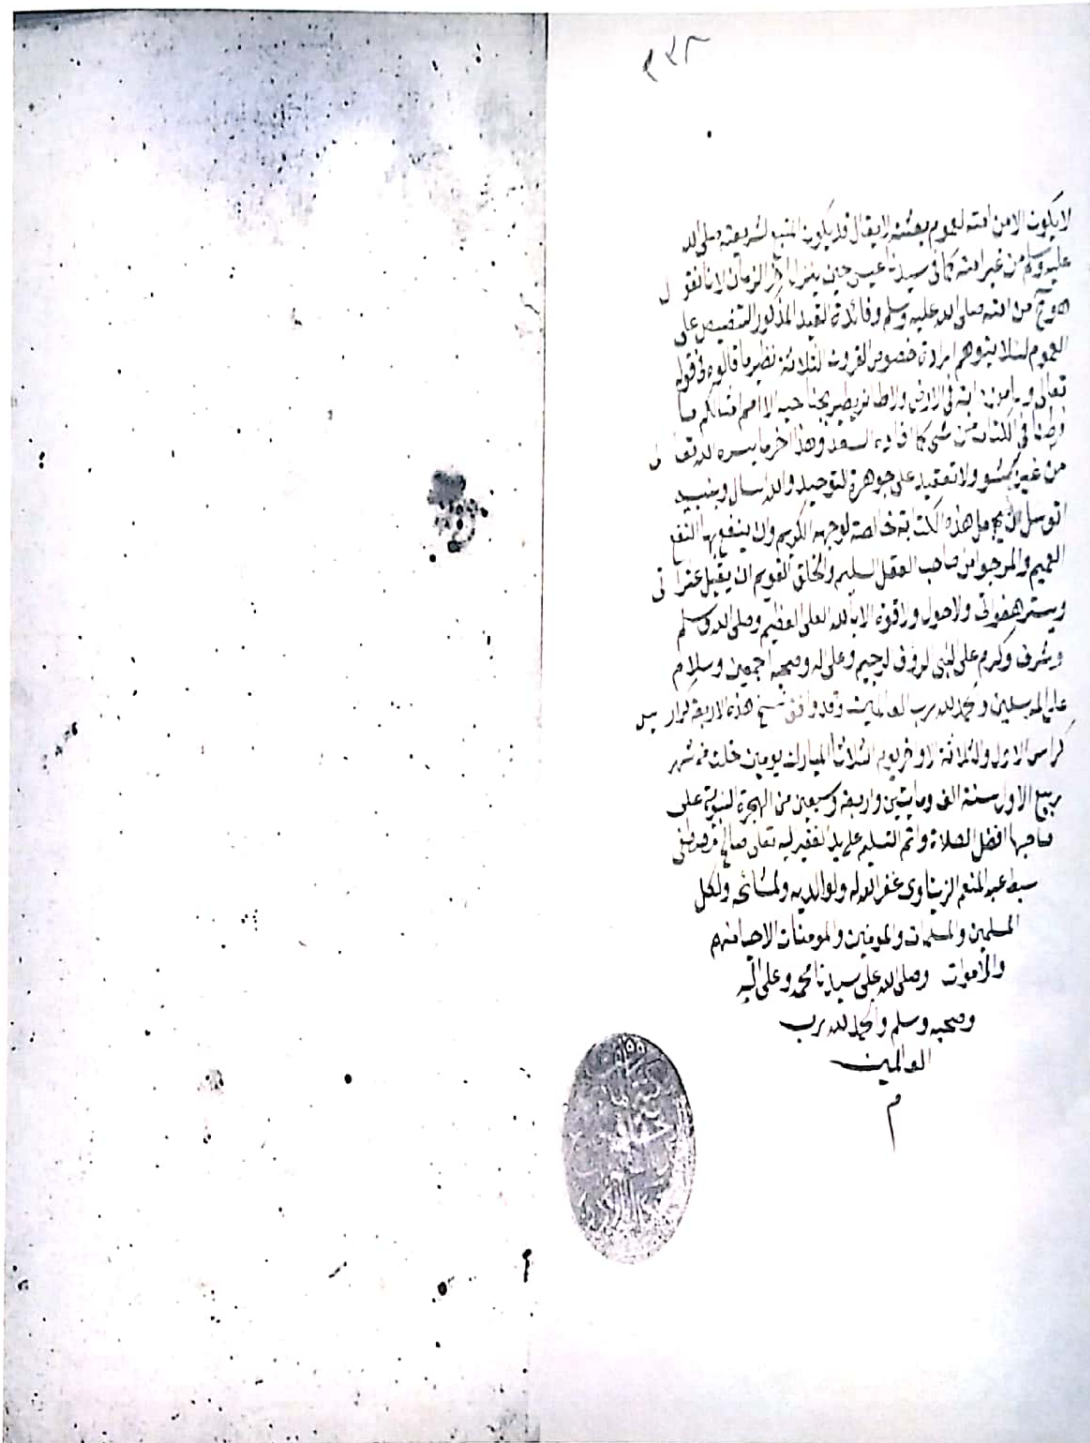 ٢٢٨
لا يكون الا من امته لعموم بعثته لا يقال قد يكون المتبع لشريعته صلى الله
عليه وسلم من غير امته كما في سيدنا عيسى حين ينزل اخر الزمان لانا نقول
هو ح من امته صلى الله عليه وسلم وفائدة القيد المذكور التنصيص على
العموم لئلا يتوهم ارادة خصوص القرون الثلاثة نظير ما قالوه في قوله
تعالى وما من دابة في الارض ولا طائر يطير بجناحيه الا امم امثالكم ما
فرطنا في الكتاب من شي كما افاده السعد وهذا اخر ما يسره الله تعالى
من غير حشو ولا تعقيد على جوهرة التوحيد والله اسال وبنبيه
اتوسل ان يجعل هذه الكتابة خالصة لوجهه الكريم وان ينفع بها النفع
العميم والمرجو من صاحب العقل السليم والخلق القويم ان يقبل عثراتي
ويستر هفواتي ولا حول ولا قوة الا بالله العلي العظيم وصلى الله وسلم
وشرف وكرم على النبي الروف الرحيم وعلى اله وصحبه اجمعين وسلام
على المرسلين والحمد لله رب العالمين وقد وافق نسخ هذه الاربعة كراريس
كراس الاول والثلاثة الاواخر يوم الثلاث المبارك يومين خلت من شهر
ربيع الاول سنة الف ومايتين واربعة وسبعين من الهجرة النبوية على
صاحبها افضل الصلاة واتم التسليم على يد الفقير اليه تعالى صالح مصطفى
سبط عبد المنعم الزيناوى غفر الله له ولوالديه ولمشائخه ولكل
المسلمين والمسلمات والمومنين والمومنات الاحيا منهم
والاموات وصلى الله على سيدنا محمد وعلى اله
وصحبه وسلم والحمد لله رب
العالمين
م